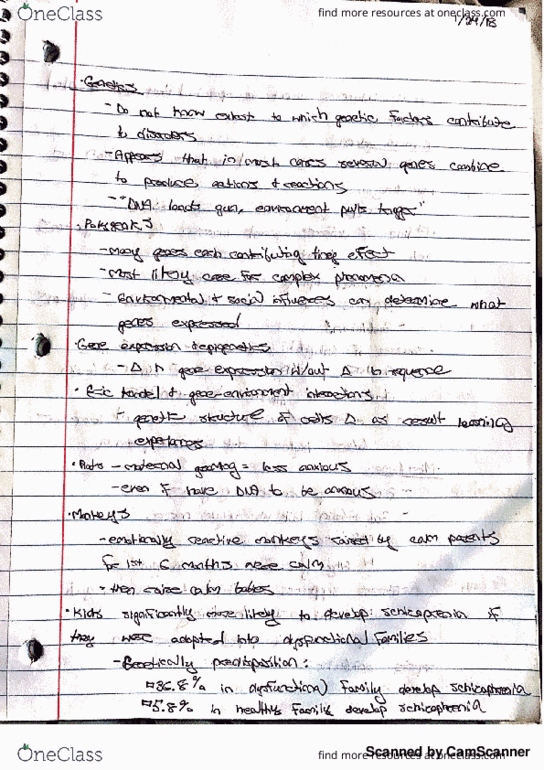 OneClass
find more resources at oneclass.com
1/29/18
• Genetics
- Do not know extent to which genetic factors contribute
to disorders
- Appears that in/most cases several genes combine
to produce actions & reactions
- "DNA loads gun, environment pulls trigger"
• Polygenic
- many genes each contributing tiny effect
- most likely case for complex phenomena
- Environmental & social influences can determine what
genes expressed
• Gene expression & epigenetics
- Δ in gene expression w/out Δ in sequence
• Eric Kandel & gene-environment interactions
- genetic structure of cells Δ as result learning
experiences
• Rats - maternal grooming = less anxious
- even if have DNA to be anxious
• Monkeys
- emotionally reactive monkeys raised by calm parents
for 1st 6 months were calm
- then raise calm babies
• Kids significantly more likely to develop schizophrenia if
they were adopted into dysfunctional families
- Genetically predisposition:
36.8% in dysfunctional family develop schizophrenia
5.8% in healthy family develop schizophrenia
OneClass
find more resources at oneclass.com
Scanned by CamScanner